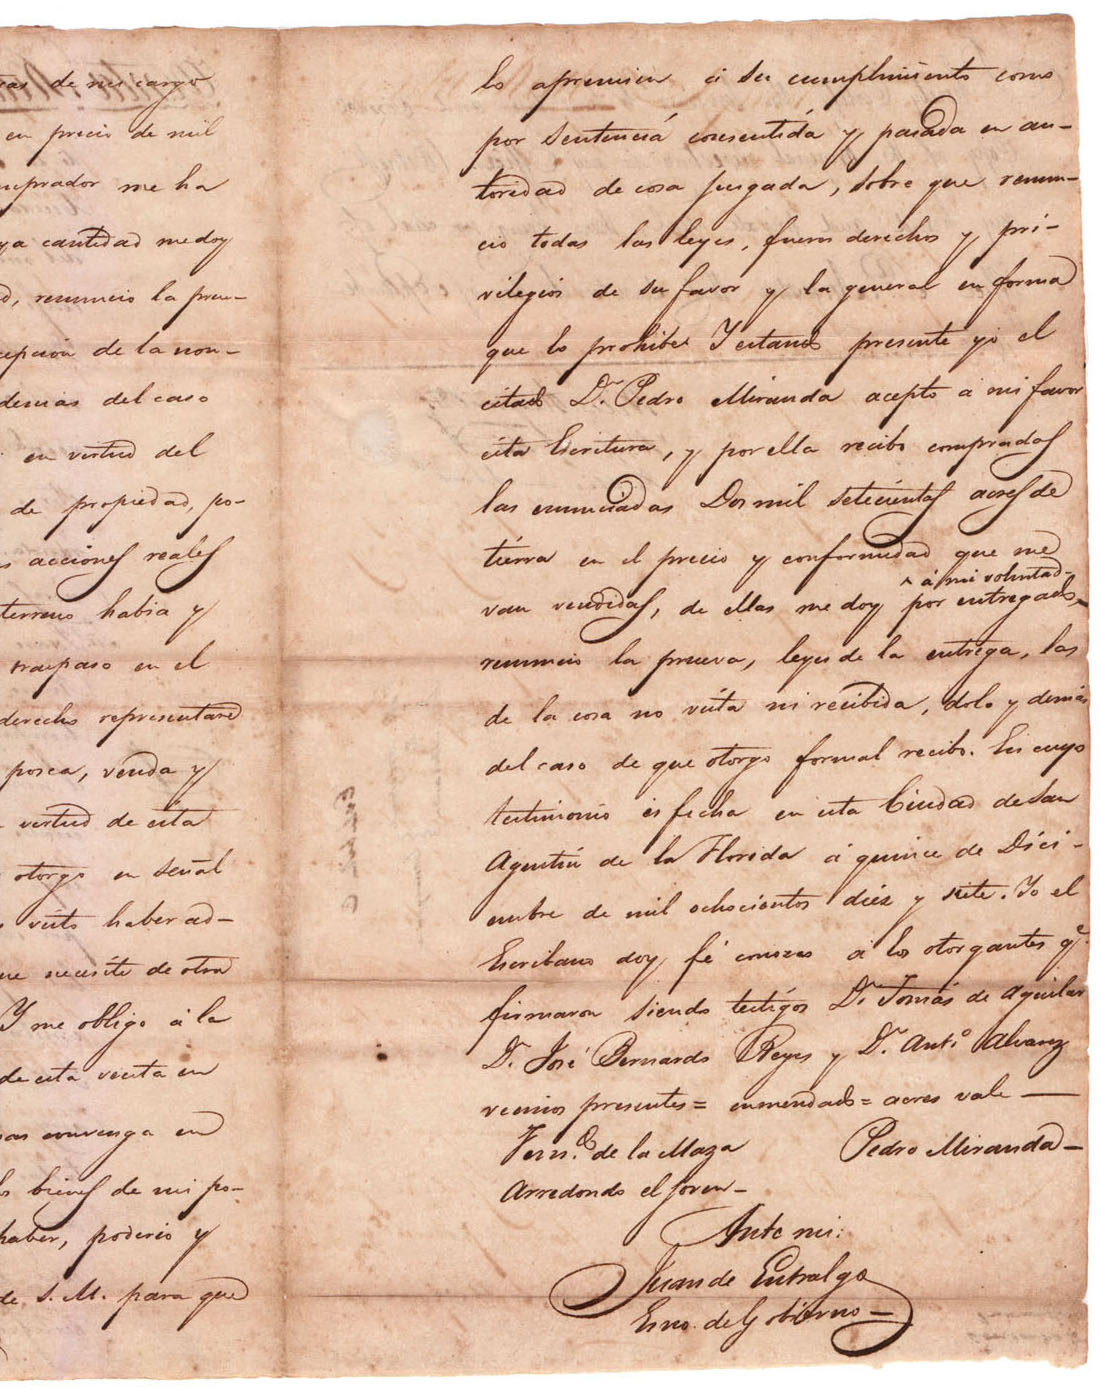 de mi cargo
en precio de mil
comprador me ha
cantidad me doy
renuncio la prue-
cepcion de la non-
demas del caso
en virtud del
de propiedad, po-
acciones reales
terreno habia y
traspaso en el
derecho representare
posea, venda y
virtud de esta
otorgo en señal
visto haber ad-
que necesite de otra
Y me obligo á la
de esta venta en
convenga en
bienes de mi po-
haber, poderio y
de S. M. para que
lo apremien á su cumplimiento como
por sentencia consentida y pasada en au-
toridad de cosa jusgada, sobre que renun-
cio todas las leyes, fueros derechos y pri-
vilegios de su favor y la general en forma
que lo prohibe. Y estando presente yo el
citado Dn. Pedro Miranda acepto á mi favor
esta Escritura, y por ella recibo compradas
las enunciadas Dos mil setecientas acres de
tierra en el precio y conformidad que me
^ á mi voluntad-
van vendidas, de ellas me doy por entregado,
renuncio la prueva, leyes de la entrega, las
de la cosa no vista ni recibida, dolo y demás
del caso de que otorgo formal recibo. En cuyo
testimonio es fecha en esta Ciudad de San
Agustin de la Florida á quince de Dici-
embre de mil ochocientos diez y siete. Yo el
Escribano doy fé conozco á los otorgantes qe.
firmaron siendo testigos Dn. Tomás de Aguilar
Dn. José Bernardo Reyes y Dn. Anto. Alvarez
vecinos presentes = enmendado = acres vale —
Fern.do de la Maza Pedro Miranda —
Arredondo el joven -
Ante mi:
Juan de Entralgo
Esno. de Gobierno —